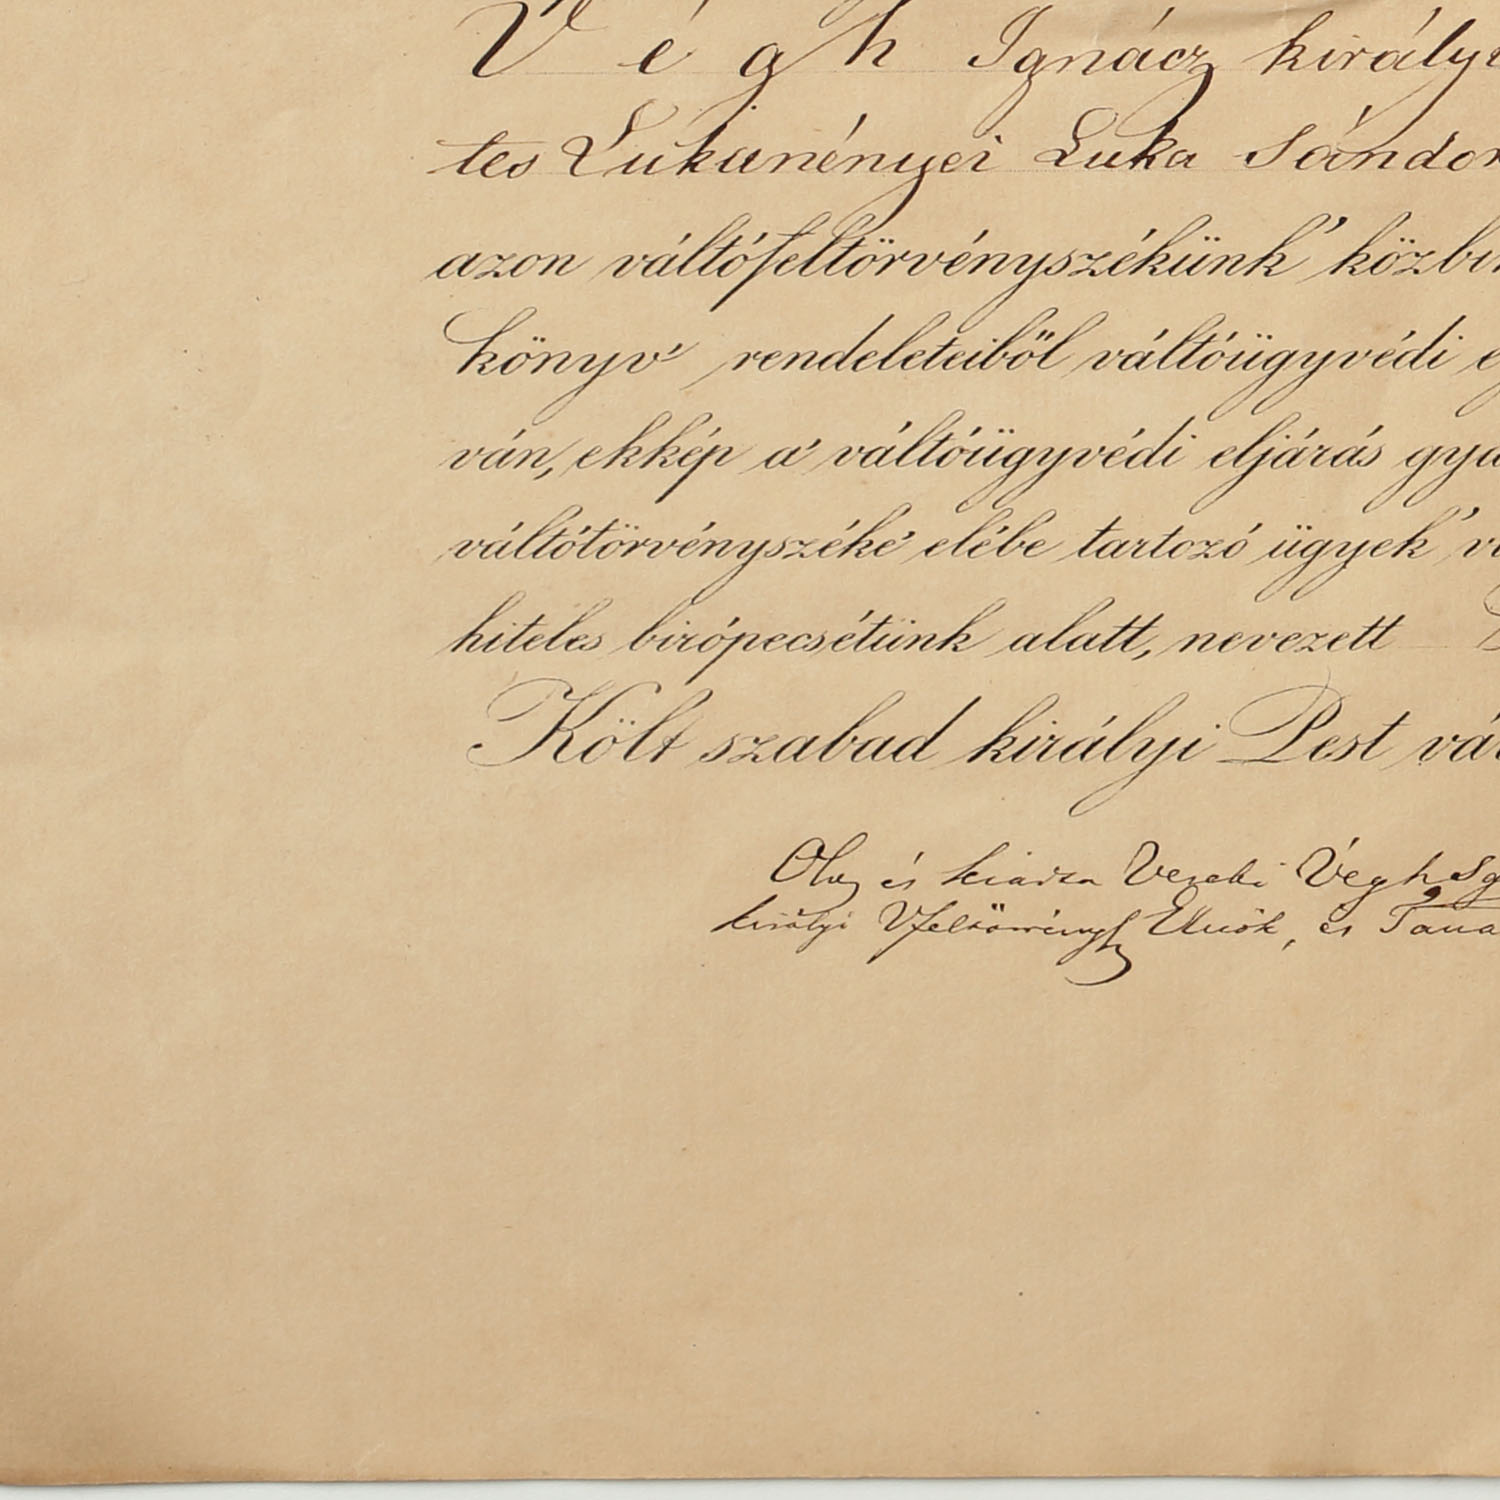 Végh Ignácz királyi
tes Lukanényei Luka Sándor
azon váltófeltörvényszékünk' közbi
könyv' rendeleteiből váltóügyvédi e
ván, ekkép a' váltóügyvédi eljárás gya
váltótörvényszéke' elébe tartozó ügyek' vi
hiteles birópecsétünk alatt, nevezett
Költ szabad királyi Pest vár
és kiadta Verebi Végh Ig
királyi Elnök, és Taná